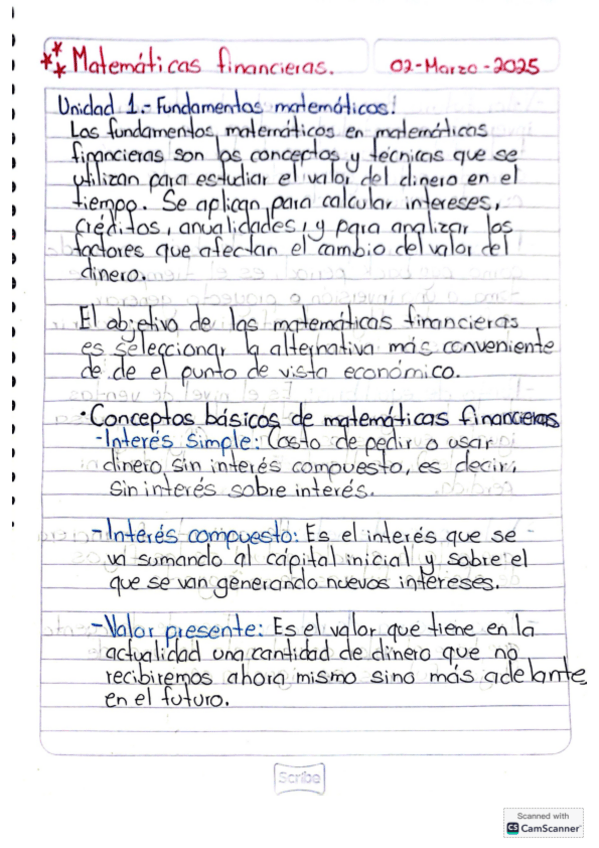 Matemáticas financieras. 02-Marzo-2025
Unidad 1.- Fundamentos matemáticos!
Los fundamentos matemáticos en matemáticas
financieras son los conceptos y técnicas que se
utilizan para estudiar el valor del dinero en el
tiempo. Se aplican para calcular intereses,
créditos, anualidades, y para analizar los
factores que afectan el cambio del valor del
dinero.
El objetivo de las matemáticas financieras
es seleccionar la alternativa más conveniente
de de el punto de vista económico.
• Conceptos básicos de matemáticas financieras
-Interés simple: Costo de pedir o usar
dinero sin interés compuesto, es decir,
sin interés sobre interés.
-Interés compuesto: Es el interés que se
va sumando al cápital inicial y sobre el
que se van generando nuevos intereses.
-Valor presente: Es el valor que tiene en la
actualidad una cantidad de dinero que no
recibiremos ahora mismo sino más adelante
en el futuro.
Scribe
Scanned with
CS CamScanner